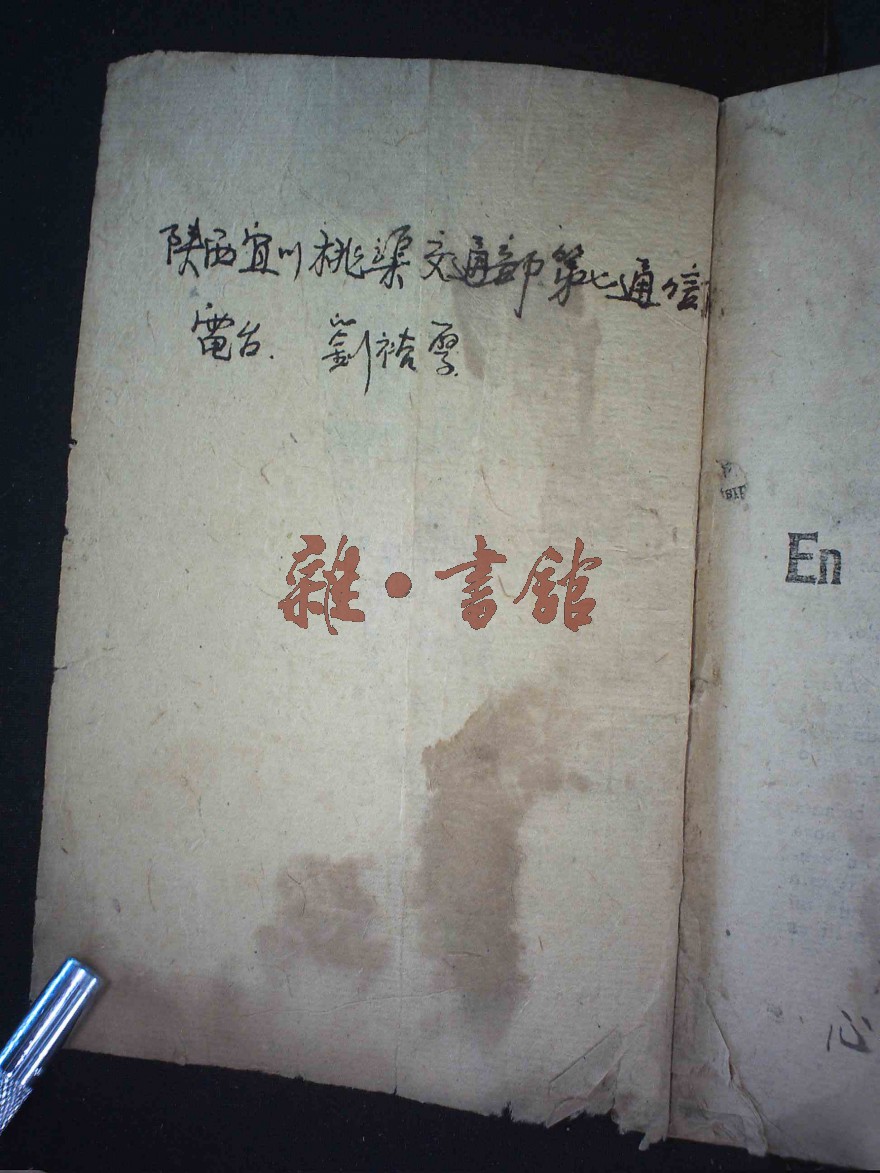 陕西宜川桃渠交通部第七通信
電台. 劉裕厚.
雜·書館
En
心